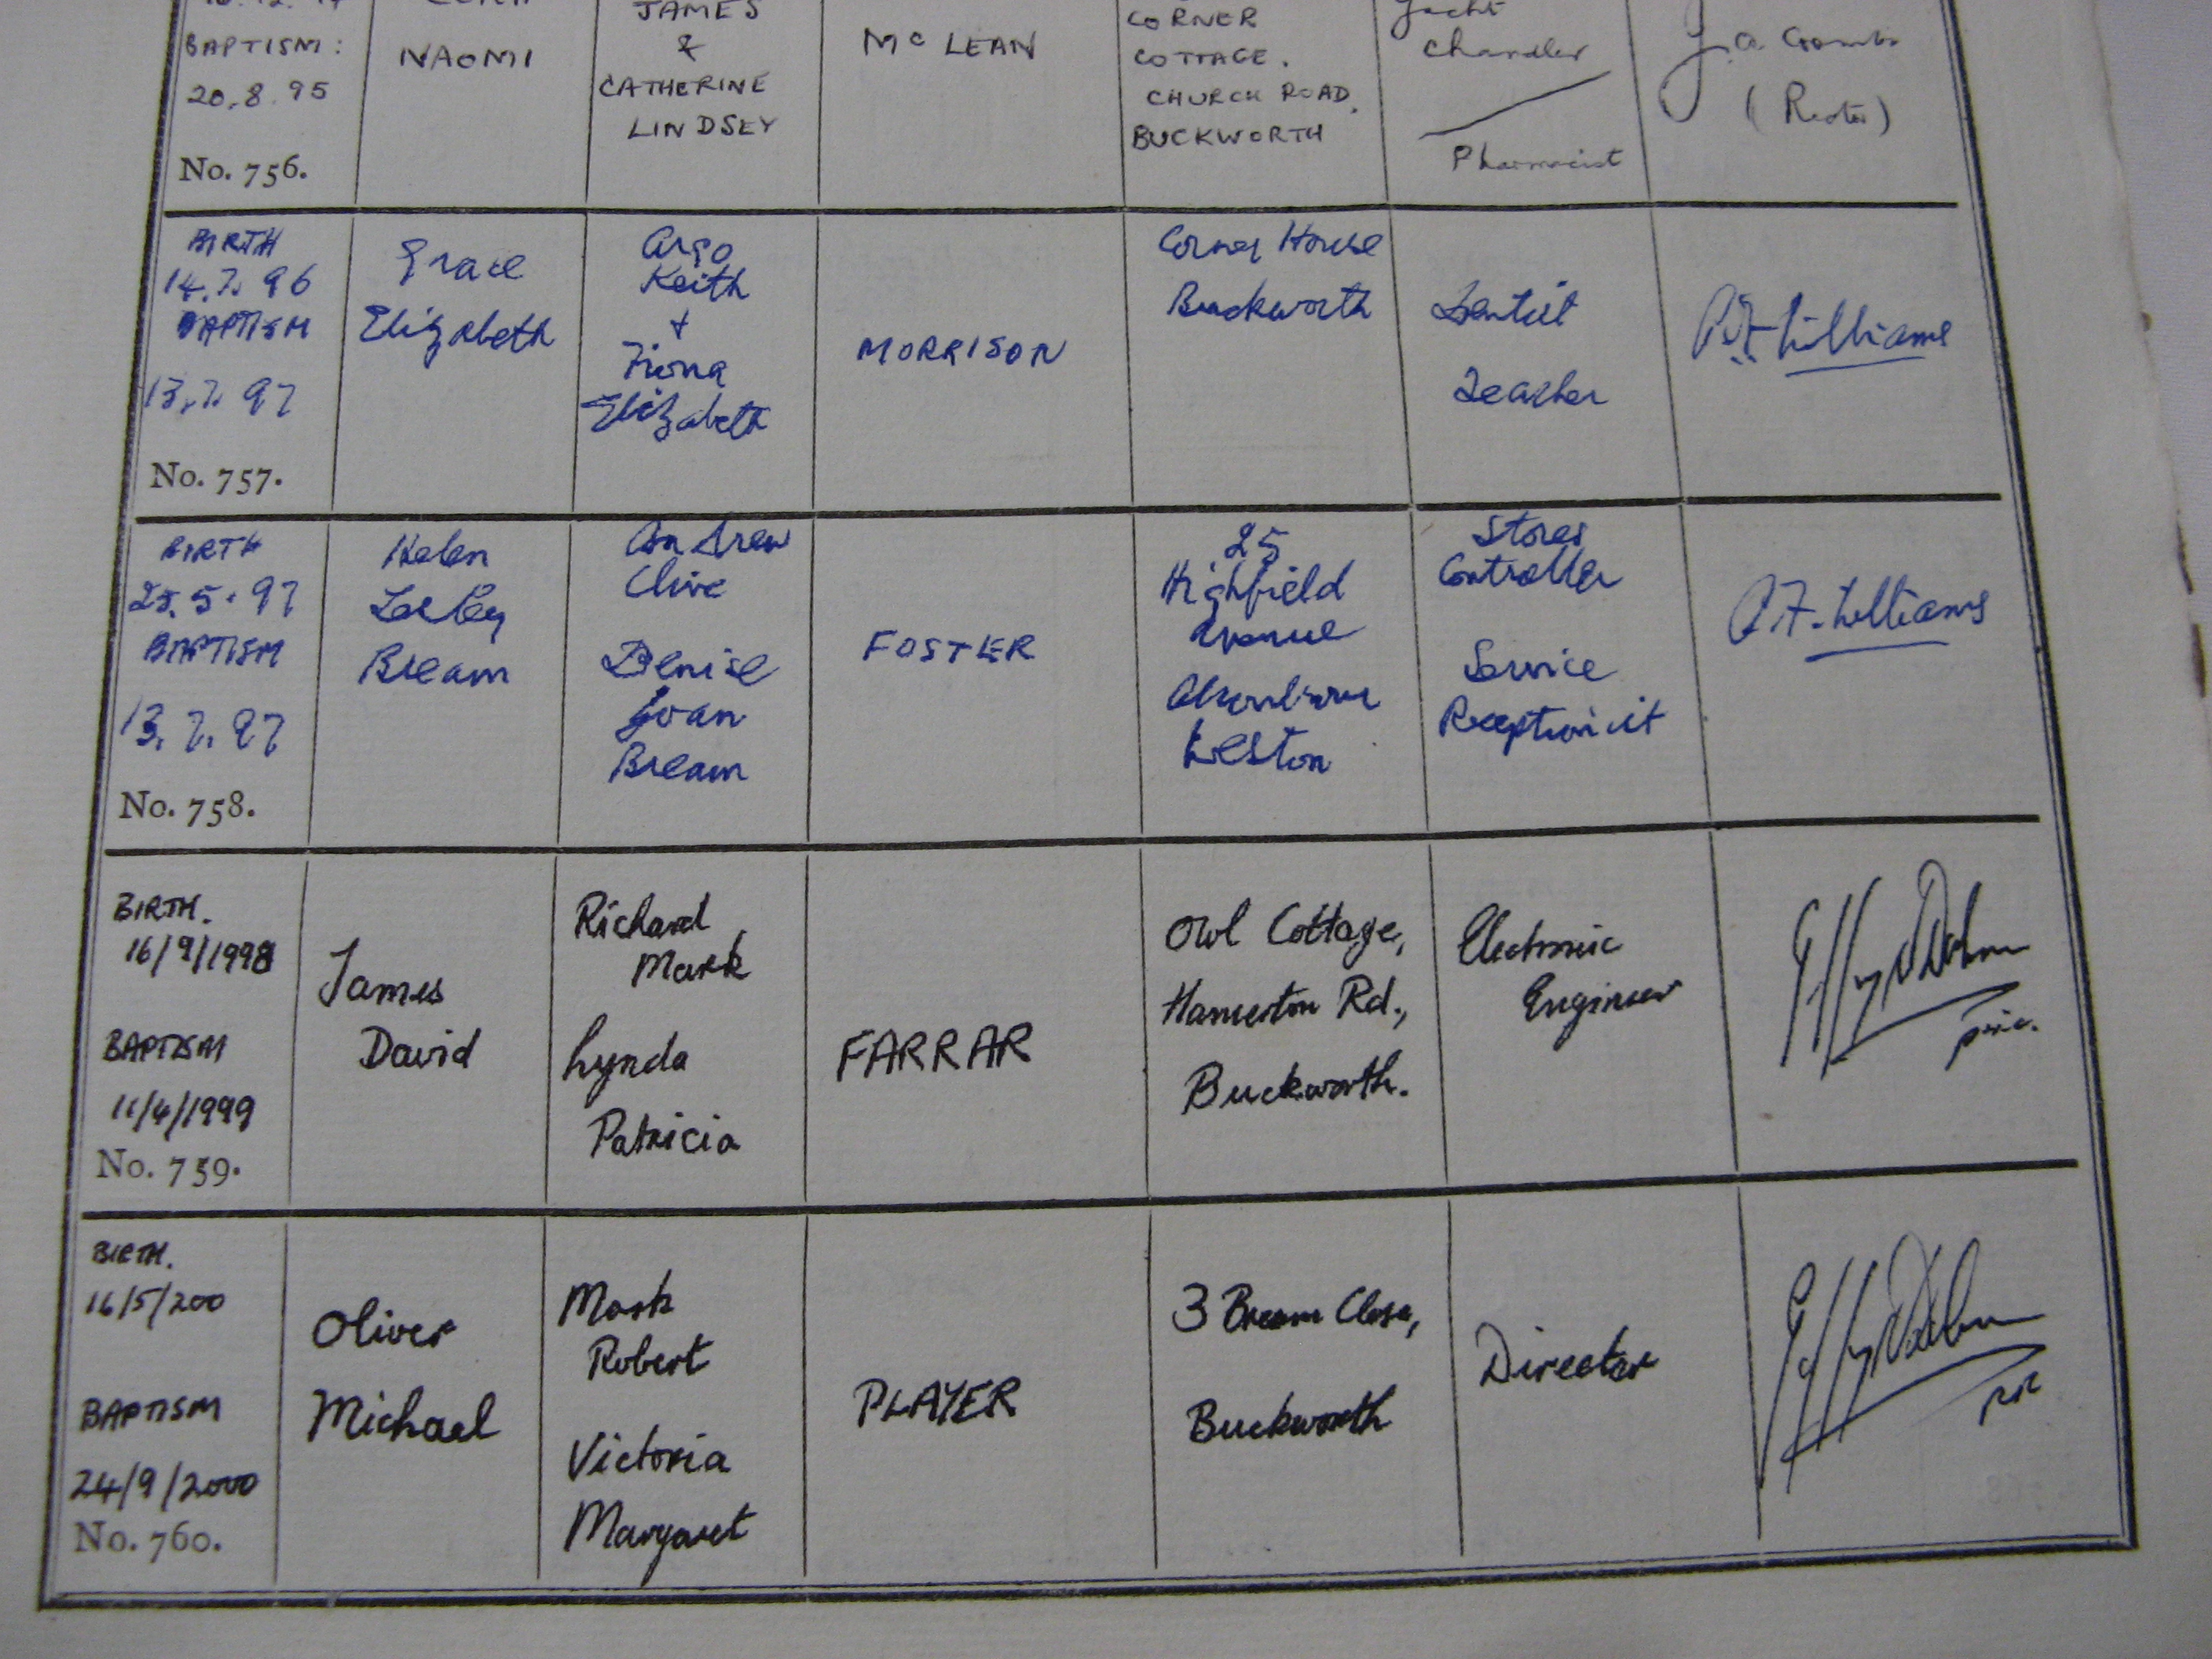 BAPTISM:
20.8.95
No. 756.
NAOMI
JAMES
&
CATHERINE
LINDSEY
Mc LEAN
CORNER
COTTAGE.
CHURCH ROAD.
BUCKWORTH
Yacht
Chandler
Pharmacist
(Rector)
BIRTH
14.7.96
BAPTISM
13.7.97
No. 757.
Grace
Elizabeth
Keith
+
Fiona
Elizabeth
MORRISON
Corner House
Buckworth
Dentist
Teacher
Williams
BIRTH
25.5.97
BAPTISM
13.7.97
No. 758.
Helen
Lesley
Bream
Andrew
Clive
Denise
Joan
Bream
FOSTER
25
Highfield
Avenue
Alconbury
Weston
Stores
Controller
Service
Receptionist
Williams
BIRTH.
16/9/1998
BAPTISM
11/4/1999
No. 759.
James
David
Richard
Mark
Lynda
Patricia
FARRAR
Owl Cottage,
Hamerton Rd.,
Buckworth.
Electronic
Engineer
BIRTH.
16/5/200
BAPTISM
24/9/2000
No. 760.
Oliver
Michael
Mark
Robert
Victoria
Margaret
PLAYER
3 Bream Close,
Buckworth
Director